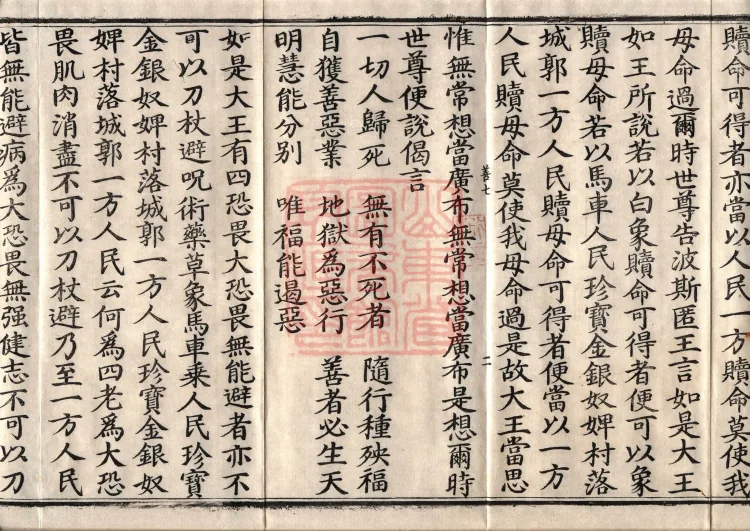 贖命可得者亦當以人民一方贖命莫使我
母命過爾時世尊告波斯匿王言如是大王
如王所說若以白象贖命可得者便可以象
贖母命若以馬車人民珍寶金銀奴婢村落
城郭一方人民贖母命可得者便當以一方
人民贖母命莫使我母命過是故大王當思
善七 二
惟無常想當廣布無常想當廣布是想爾時
世尊便說偈言
一切人歸死 無有不死者 隨行種殃福
自獲善惡業 地獄為惡行 善者必生天
明慧能分別 唯福能遏惡
如是大王有四恐畏大恐畏無能避者亦不
可以刀杖避呪術藥草象馬車乘人民珍寶
金銀奴婢村落城郭一方人民珍寶金銀奴
婢村落城郭一方人民云何為四老為大恐
畏肌肉消盡不可以刀杖避乃至一方人民
皆無能避病為大恐畏無强健志不可以刀